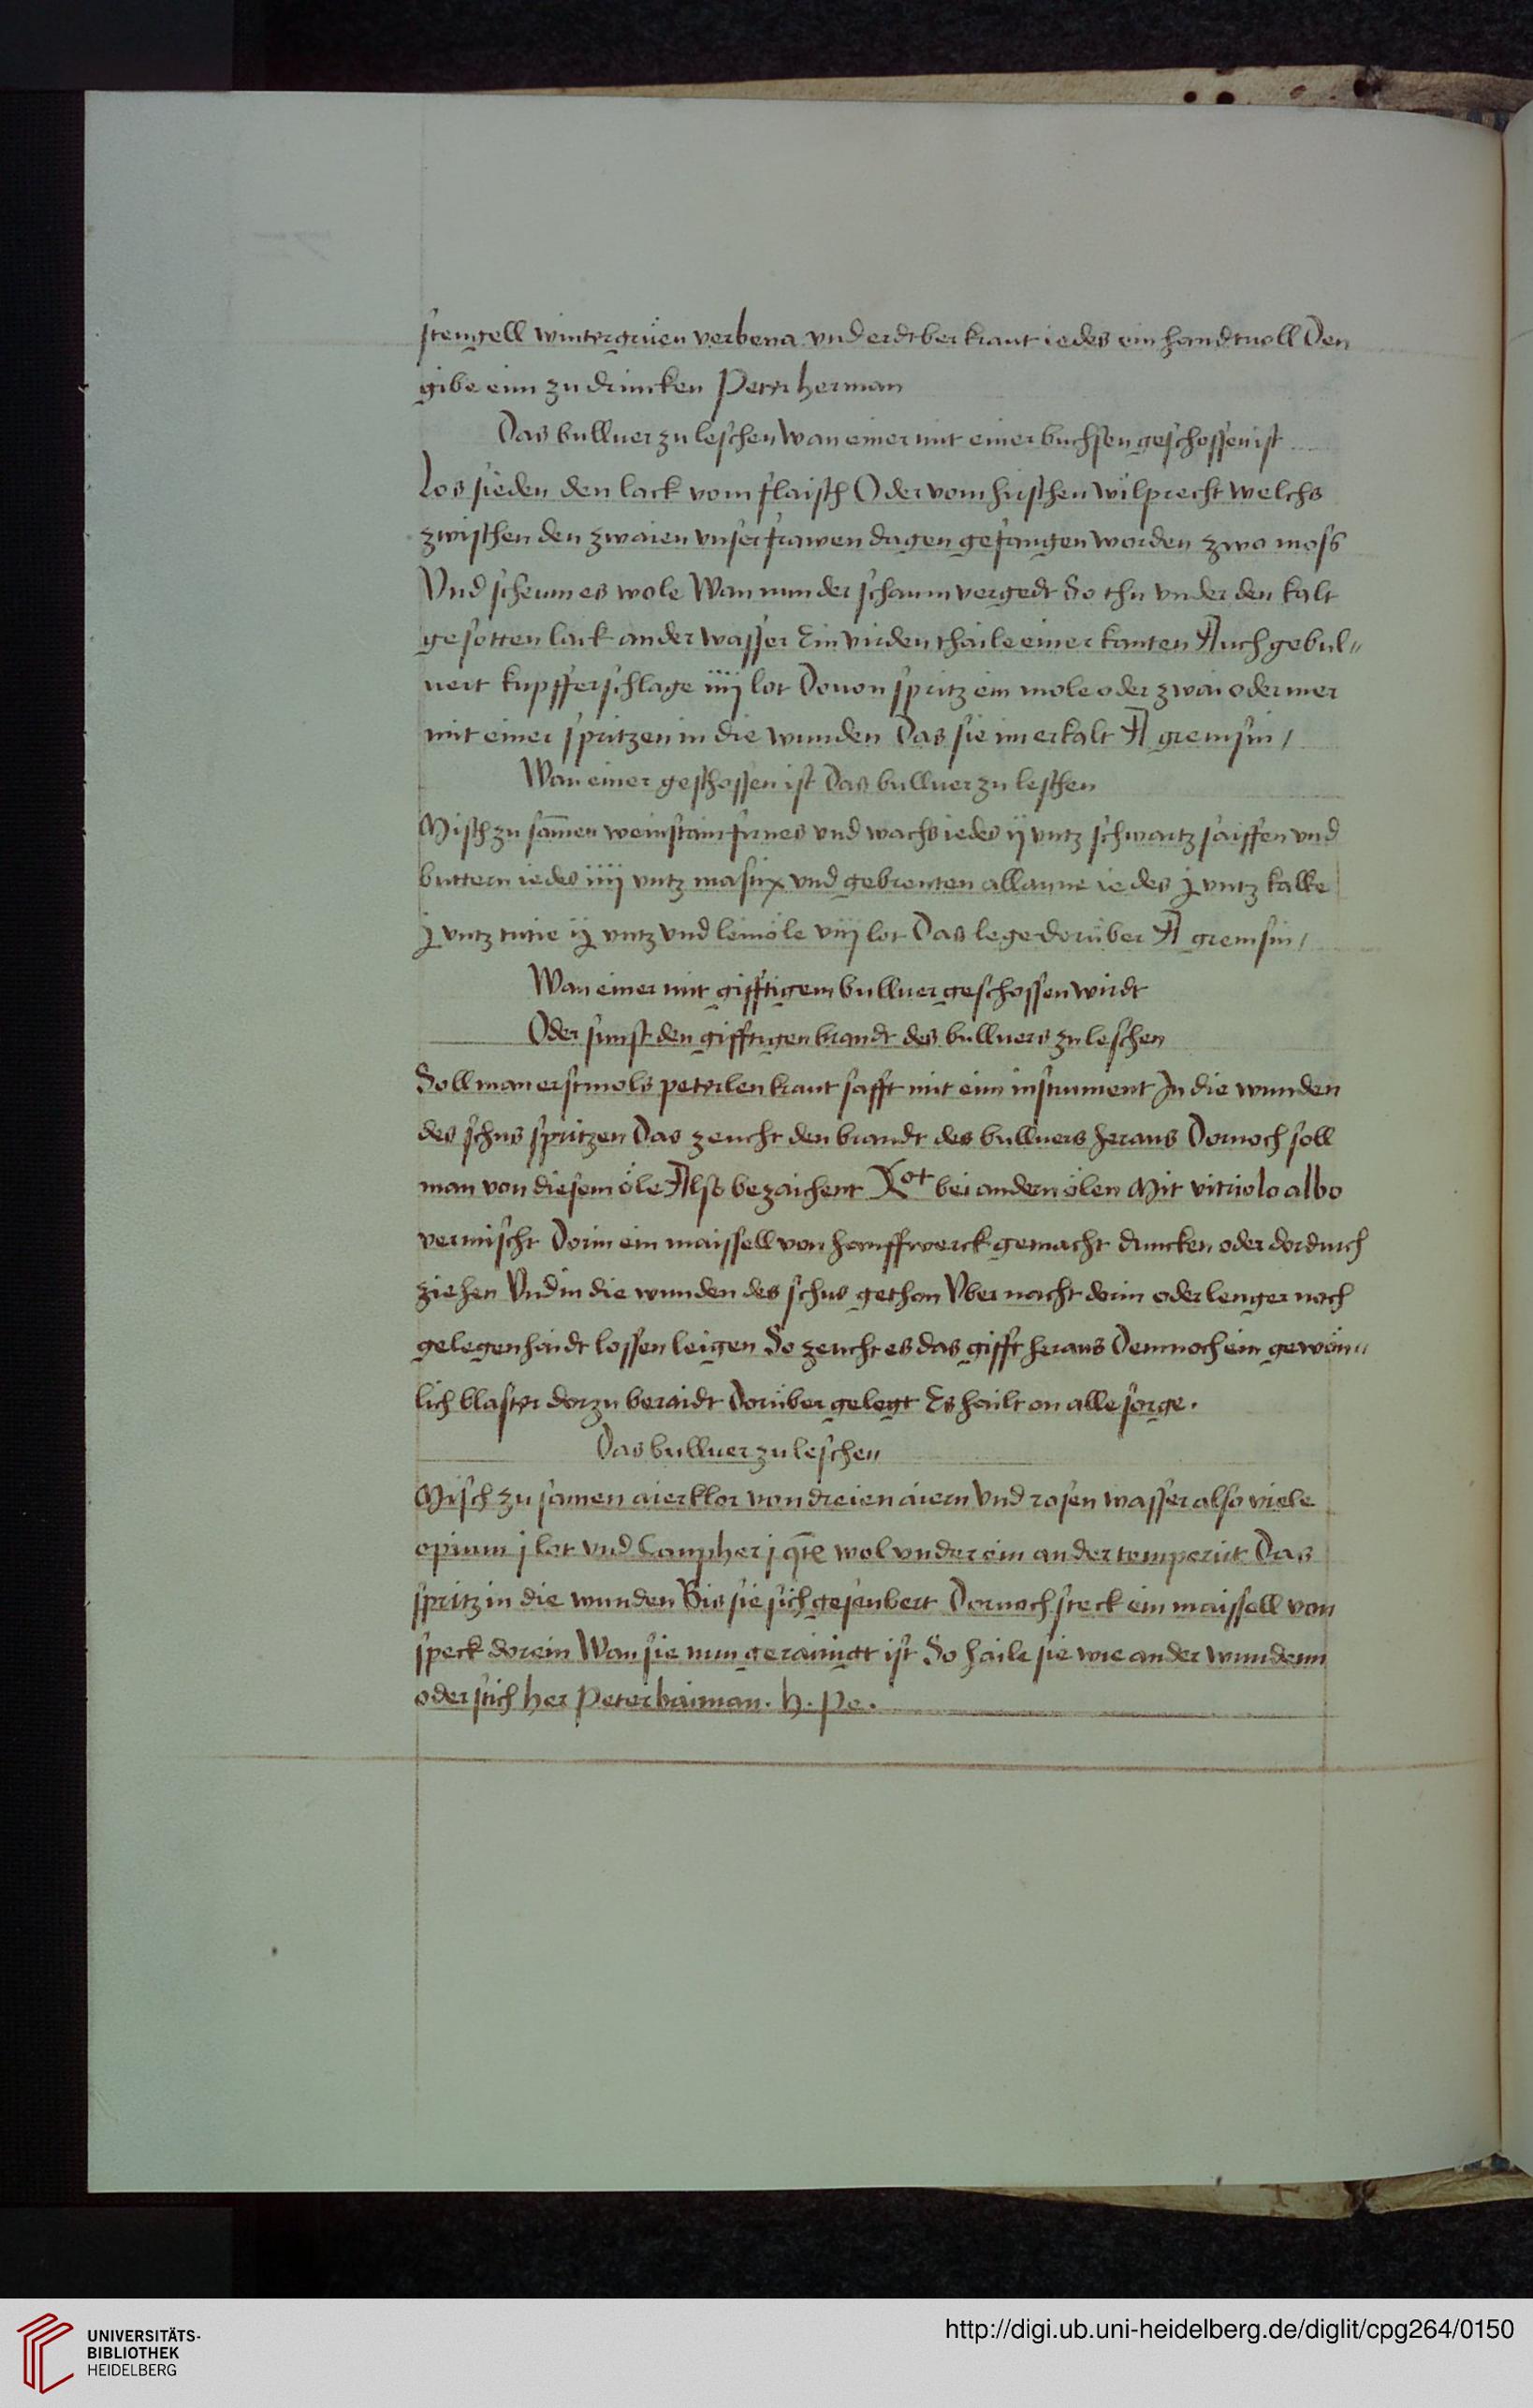 stengell wintergrüen verbena vnd erdtber kraut iedes ein handtuoll Den
gibe eim zu drincken Peter herman
Das bulluer zu leschen Wan einer mit einer buchsen geschossen ist
Los sieden den lack vom flaisch Oder vom hirschen wilprecht welchs
zwischen den zwaien vnser frawen dagen gefangen worden zwo moss
Vnd scheum es wole Wan nun der schaum vergedt So thu vnder den kalt
gesotten lack ander wasser Ein virden thaile einer kanten Auch gebul„
uert kupfferschlage iiij lot Douon spritz ein mole oder zwai oder mer
mit einer spritzen in die wunden Das sie im erkalt A gremsin /
Wan einer geschossen ist Das bulluer zu leschen
Misch zu samen weinstain firnes vnd wachs iedes ij vntz schwartz saiffen vnd
buttern iedes iiij vntz mastix vnd gebrenten allaune iedes j vntz kalke
j vntz tutie ij vntz vnd leinöle viij lot Das lege dorüber A gremsin /
Wan einer mit gifftigem bulluer geschossen wirdt
Oder sunst den gifftigen brandt des bulluers zu leschen
Soll man erstmols peterlen kraut safft mit eim instrument In die wunden
des schus spritzen Das zeucht den brandt des bulluers heraus Dornoch soll
man von diesem öle Also bezaichent bei andern ölen Mit vitriolo albo
vermischt Dorin ein maissell von hanffwerck gemacht duncken oder dordurch
ziehen Vnd in die wunden des schus gethon Vber nacht dorin oder lenger noch
gelegenhaidt lossen leigen So zeucht es das gifft heraus Demnoch ein gewön„
lich blaster dorzu beraidt Dorüber gelegt Es hailt on alle sorge .
Das bulluer zu leschen
Misch zu samen aierklor von dreien aiern Vnd rosen wasser also viele
opium j lot vnd Campher j qte wol vnder ein ander temperirt Das
spritz in die wunden Bis sie sich geseubert Dornoch steck ein maissell von
speck dorein Wan sie nun gerainigt ist So haile sie wie ander wundenn
oder stich her Peter baiman . h . pe .
UNIVERSITÄTS-
BIBLIOTHEK
HEIDELBERG
http://digi.ub.uni-heidelberg.de/diglit/cpg264/0150